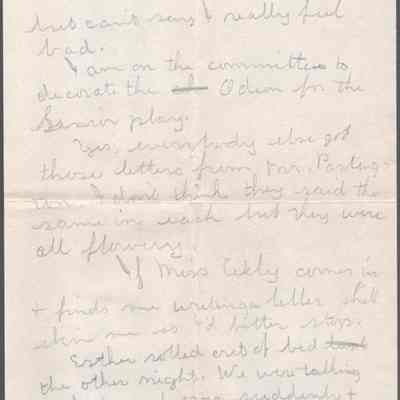 but can't say I really feel
bad.
I am on the committee to
decorate the Odeon for the
Senior play.
Yes, everybody else got
those letters from Mr.
I don't think they said the
same in each but they were
all flowery.
If Miss comes in
+ finds me writing a letter she'll
skin me so I'd bitter stop.
Esther rolled out of bed
the other night. We were talking
suddenly +